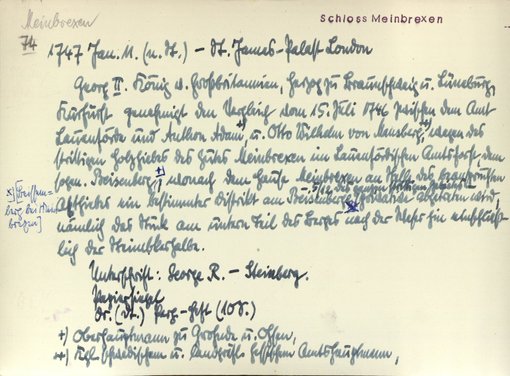 Meinbrexen
Schloss Meinbrexen
74
1747 Jan. 11. (n. St.) – St. James-Palast London
Georg II. König v. Großbritannien, Herzog zu Braunschweig u. Lüneburg,
Kurfürst genehmigt den Vergleich vom 15. Juli 1746 zwischen dem Amt
Lauenförde und Anthon Adam +) u. Otto Wilhelm von Mansberg, ++) wegen des
streitigen Holzhiebes des Gutes Meinbrexen im Lauenfördischen Amtsforst, dem
sogen. Reisenberg, x) wonach dem Hause Meinbrexen an Stelle des beanspruchten
Abhiebes ein bestimmter Distrikt am Reisenberge abgetreten wird,
nämlich das Stück am untern Teil des Berges nach der Weser hin einschließ-
lich der
Unterschrift: George R. – Steinberg.
Papiersiegel
Or. (dt.) Perg.-Heft (10 S.)
+) Oberhauptmann zu Grohnde u. Ohsen,
++) Kgl. schwedischem u. landgräfl. hessischem Amtshauptmann,